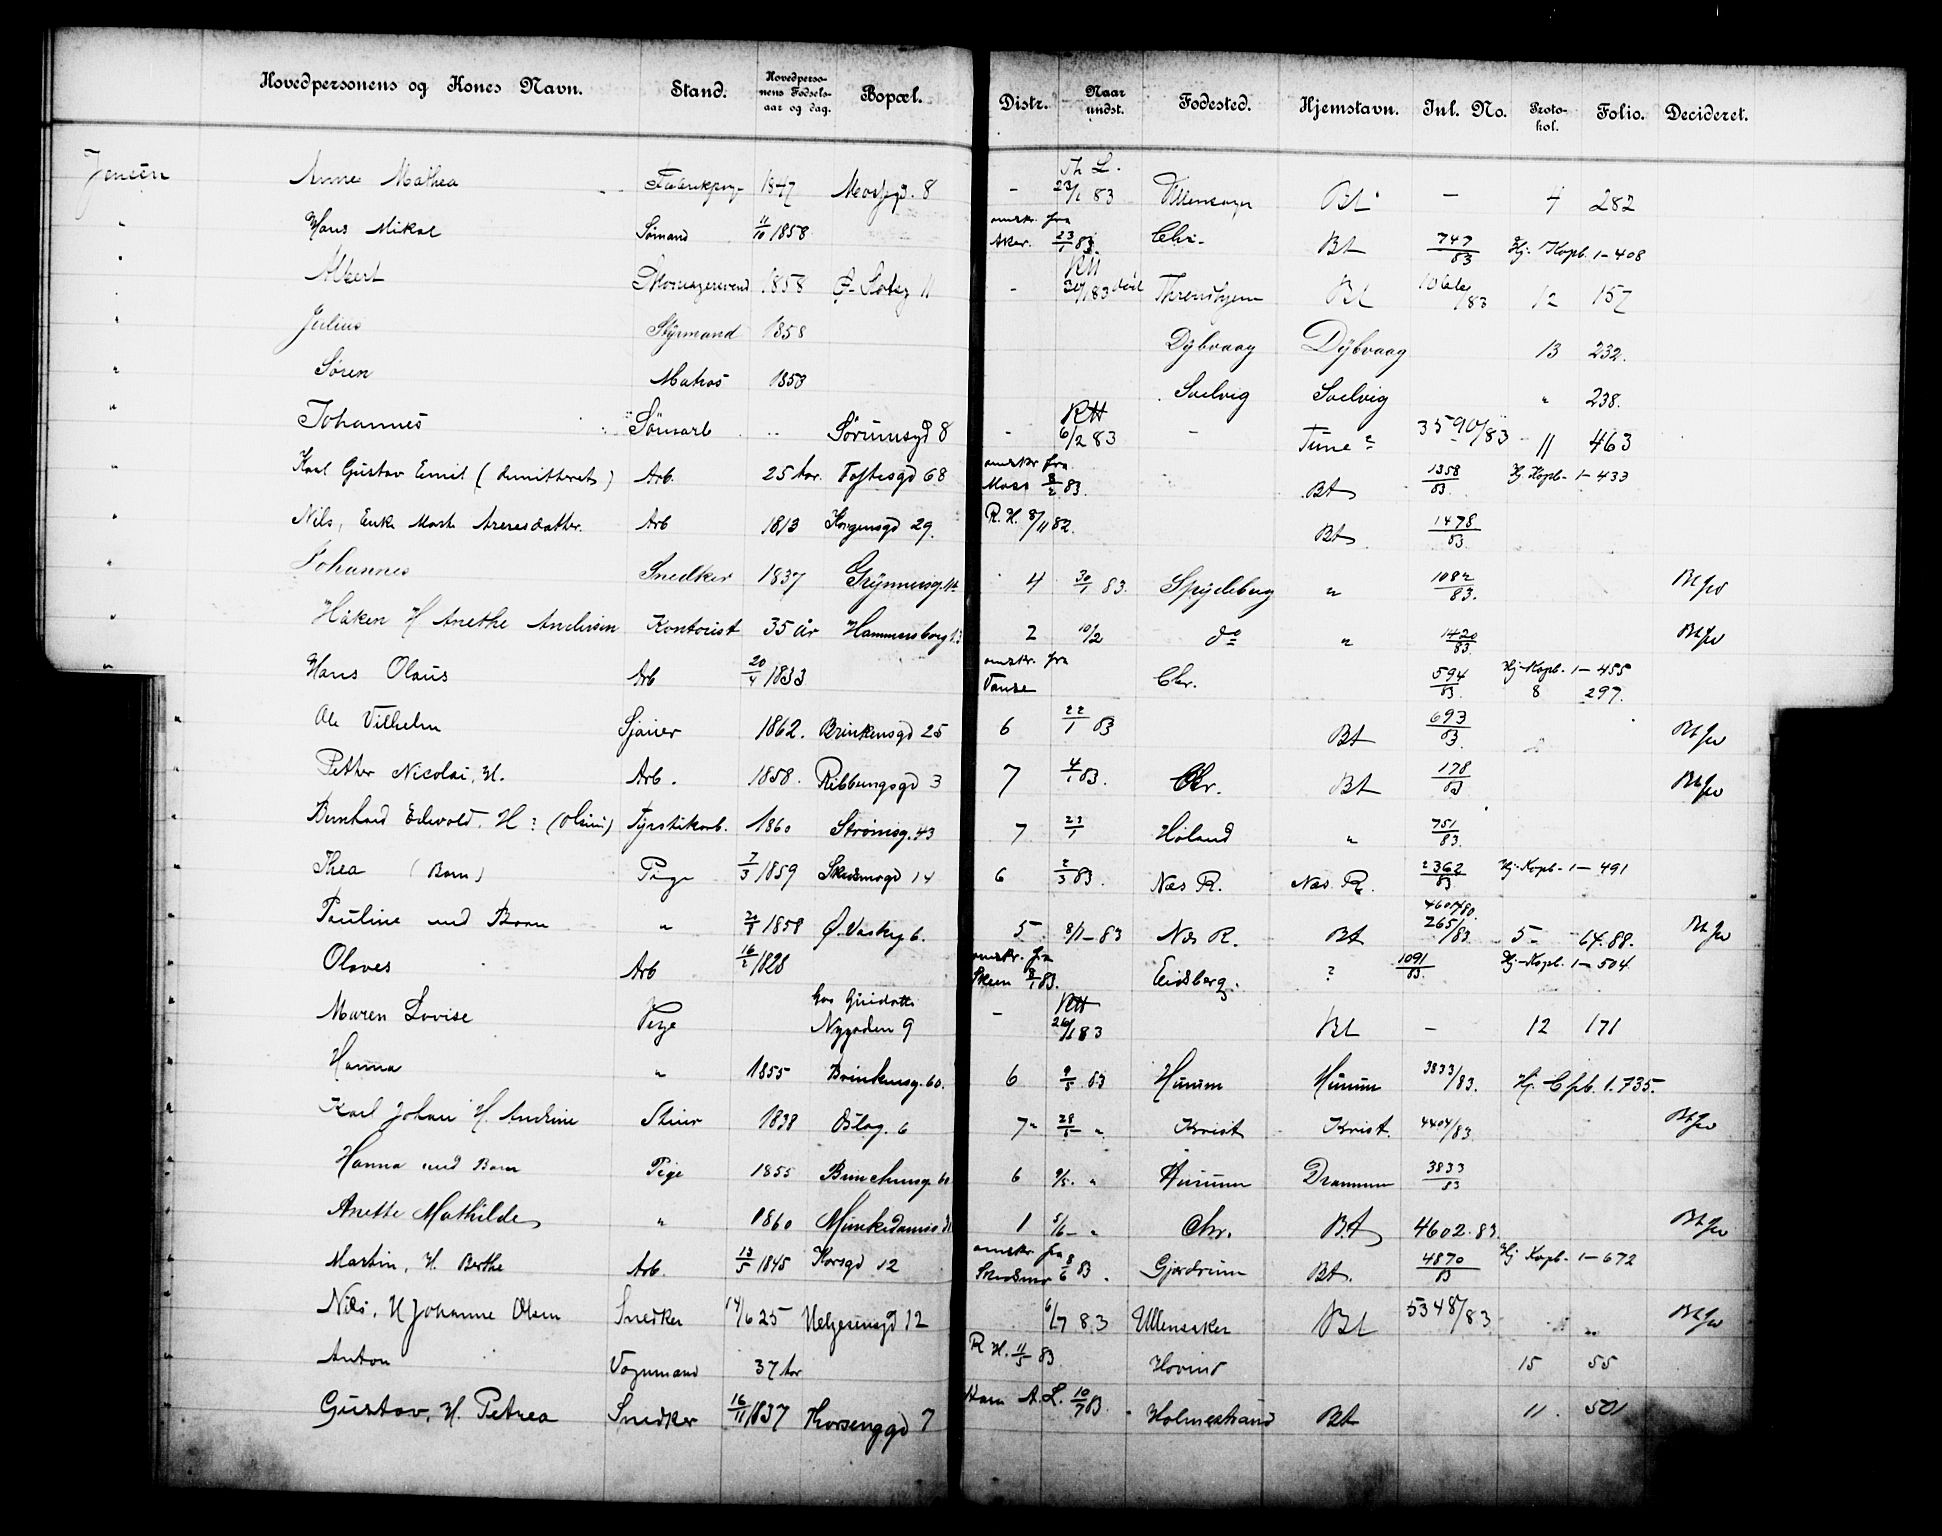 Hovedpersonens og Kones Navn. Stand. Hovedperso-nens Fødsels-aar og dag. Bopæl. Distr. Naar undst. Fødested. Hjemstavn. Inl. No. Proto-kol. Folio. Decideret.
Jensen Anne Mathea 1847 8 - Th. L. 23/1 83 Bt. - 4 282
" Hans Mikal Sømand 11/10 1858 omskr. fra Aker. 23/1 83. Chr. Bt 747/83 Hj. Kopb. 1-408
" Albert Skomagersvend 1858 11 - RH 30/1 83 død Throndhjem Bt /83 12 157
" Julius Styrmand 1858 Dybvaag Dybvaag 13 232.
" Søren Matros 1853 Soelvig Soelvig " 238.
" Johannes " Sørumsgd 8 - RH 6/2 83 - Tune? 3590/83 11 463
" Karl Gustav Emil (Remitteret) Arb. 25 Aar. Toftesgd 68 omskr fra Moss 8/2 83. Bt 1358/83. Hj. Kopb. 1-433
" Nils, Enke Marth Arnesdatter. Arb 1813 Korgensgd 29. R. H. 8/11 82. Bt 1478/83.
" Johannes Snedker 1837 Grynnersg. 4 30/1 83. Spydeberg " 1082/83. Bt Jw
" Håken H Anethe Andersen Kontorist 35 år Hammersborg 13 2 10/2 do " 1420/83. Bt Jw
" Hans Olaus Arb 20/4 1833 omskr. fra Vanse Chr. 594/83. Hj. Kopb. 1-455
8 297.
" Ole Vilhelm Sjauer 1862. Brinkensgd 25 6 22/1 83 Bt 693/83. Bt Jw
" Petter Nicolai, H. Arb. 1858. Ribbungsgd 3 7 4/1 83. Chr. Bt 178/83 Bt Jw
" Bernhard Edevold, H? (Olsen) Fyrstikarb. 1860 Strømsg. 43 7 23/1 Høland " 751/83.
" Thea (Barn) Pige 7/3 1859 Skedsmogd 14 6 2/3 83. Næs R. Næs R. 2362/83 Hj. Kopb. 1-491
" Pauline med Barn " 1858 Ø. Vaskeg. 6. 5 8/1-83 Næs R. Bt 4601/80. 265/83 5 64.88. Bt Jw
" Olaves Arb 16/2 1828 omskr. fra Skeen 8/1 83. Eidsberg. ? 1091/83. Hj. Kopb. 1-504.
" Maren Lovise Pige hos Guidotti Nygaden 9 - RH 26/1 83 Bt - 12 171
" Hanna " 1855 Brinkensg. 60. 6 9/5 83 Hurum Hurum 3833/83. Hj. Cpb. 1.735.
" Karl Johan H. Andrine 1838 Oslog. 6 7 28/5 " Krist Krist. 4404/83. Bt Jw
" Hanna med Barn Pige 1855 6 9/5. " Hurum Drammen 3833/83
" Anette Mathilde " 1860 Munkedamsv 1 5/6- " Chr. Bt 4602.83. Bt Jw
" Martin, H. Berthe Arb. 13/5 1845 Korsgd 12 omskr fra Skedsmo 8/6 83. Gjerdrum Bt. 4870/83 Hj. Kopb. 1-672
" Nils, H Johanne Olsen Snedker 14/6 25 Helgesensgd 12 6/7 83 Ullensaker Bt 5348/83 " Bt Jw
" Anton Vognmand 37 Aar R. H. 11/5 83 Hovind 15 55
" Gustav, H. Petrea Snedker 16/11 1837 Thorsenggd 7 A. L. 10/7 83. Holmestrand Bt 11. 501